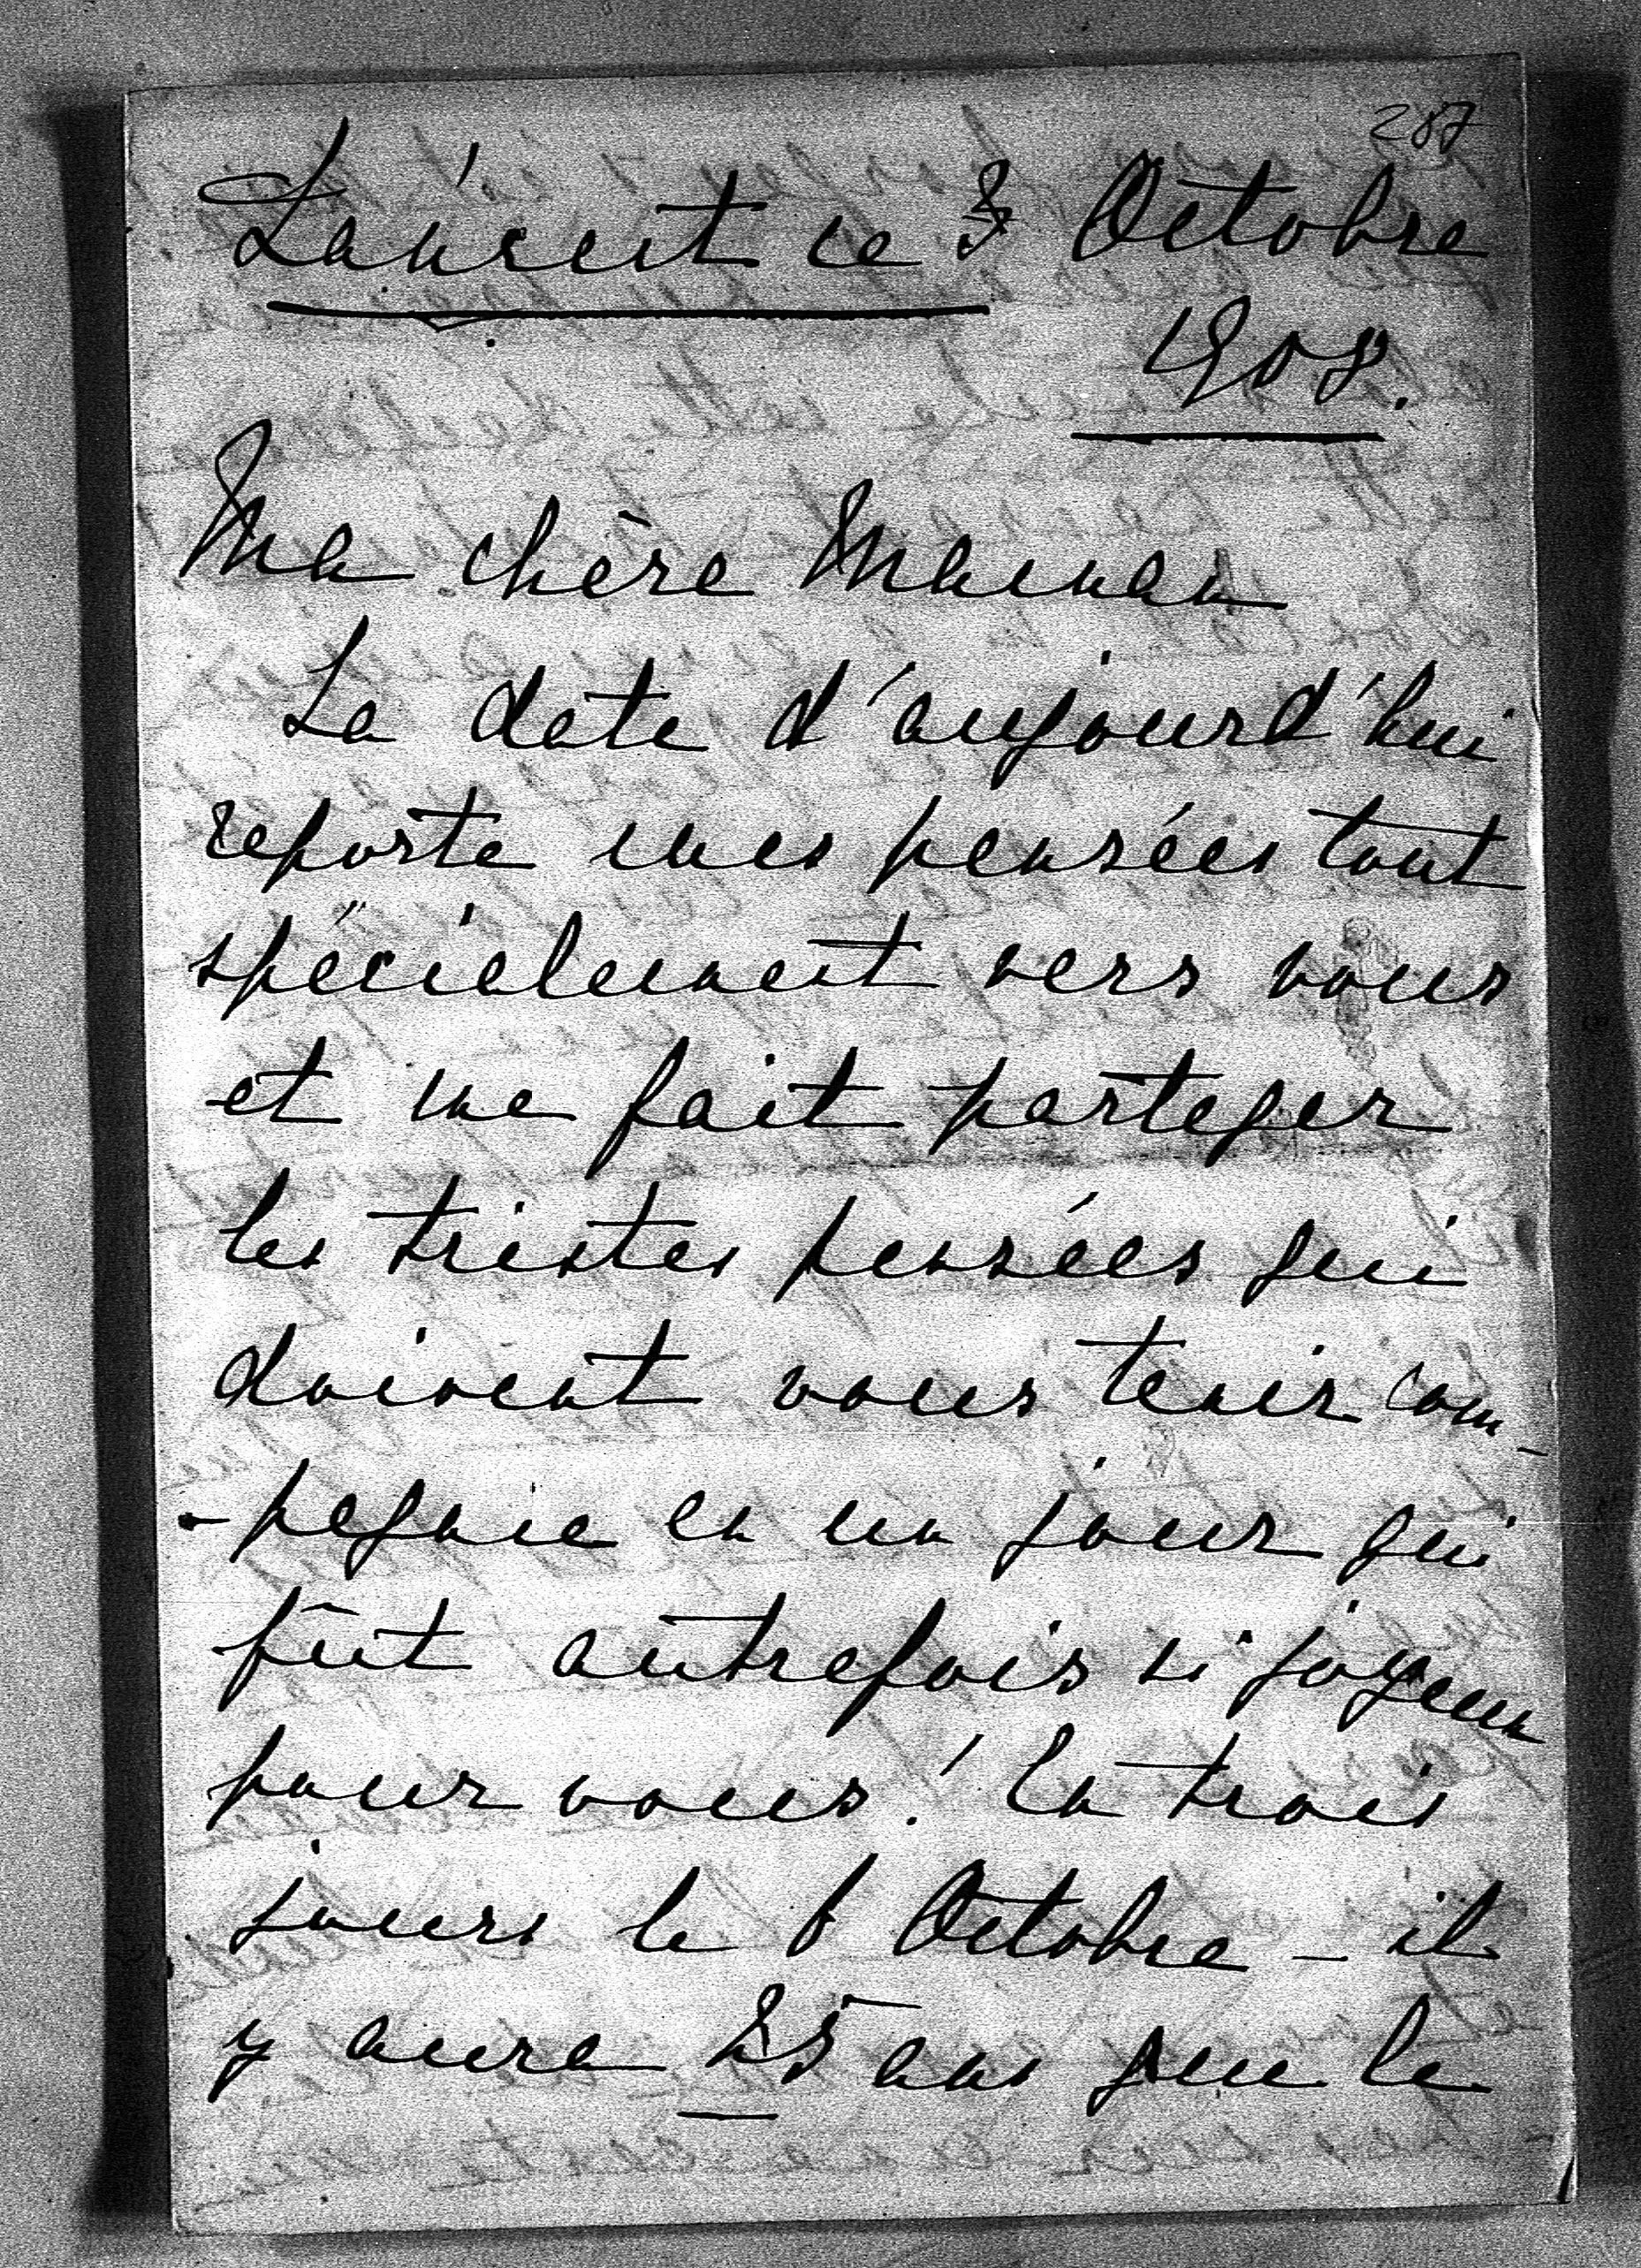 287
Lancut ce 3 Octobre
1908.
Ma chère Maman
La date d'aujourd'hui
reporte mes pensées tout
spécialement vers vous
et me fait partager
les tristes pensées qui
doivent vous tenir com-
-pagnie en un jour qui
fut autrefois si joyeux
pour vous! En trois
jours le 6 Octobre - il
y aura 25 ans que le